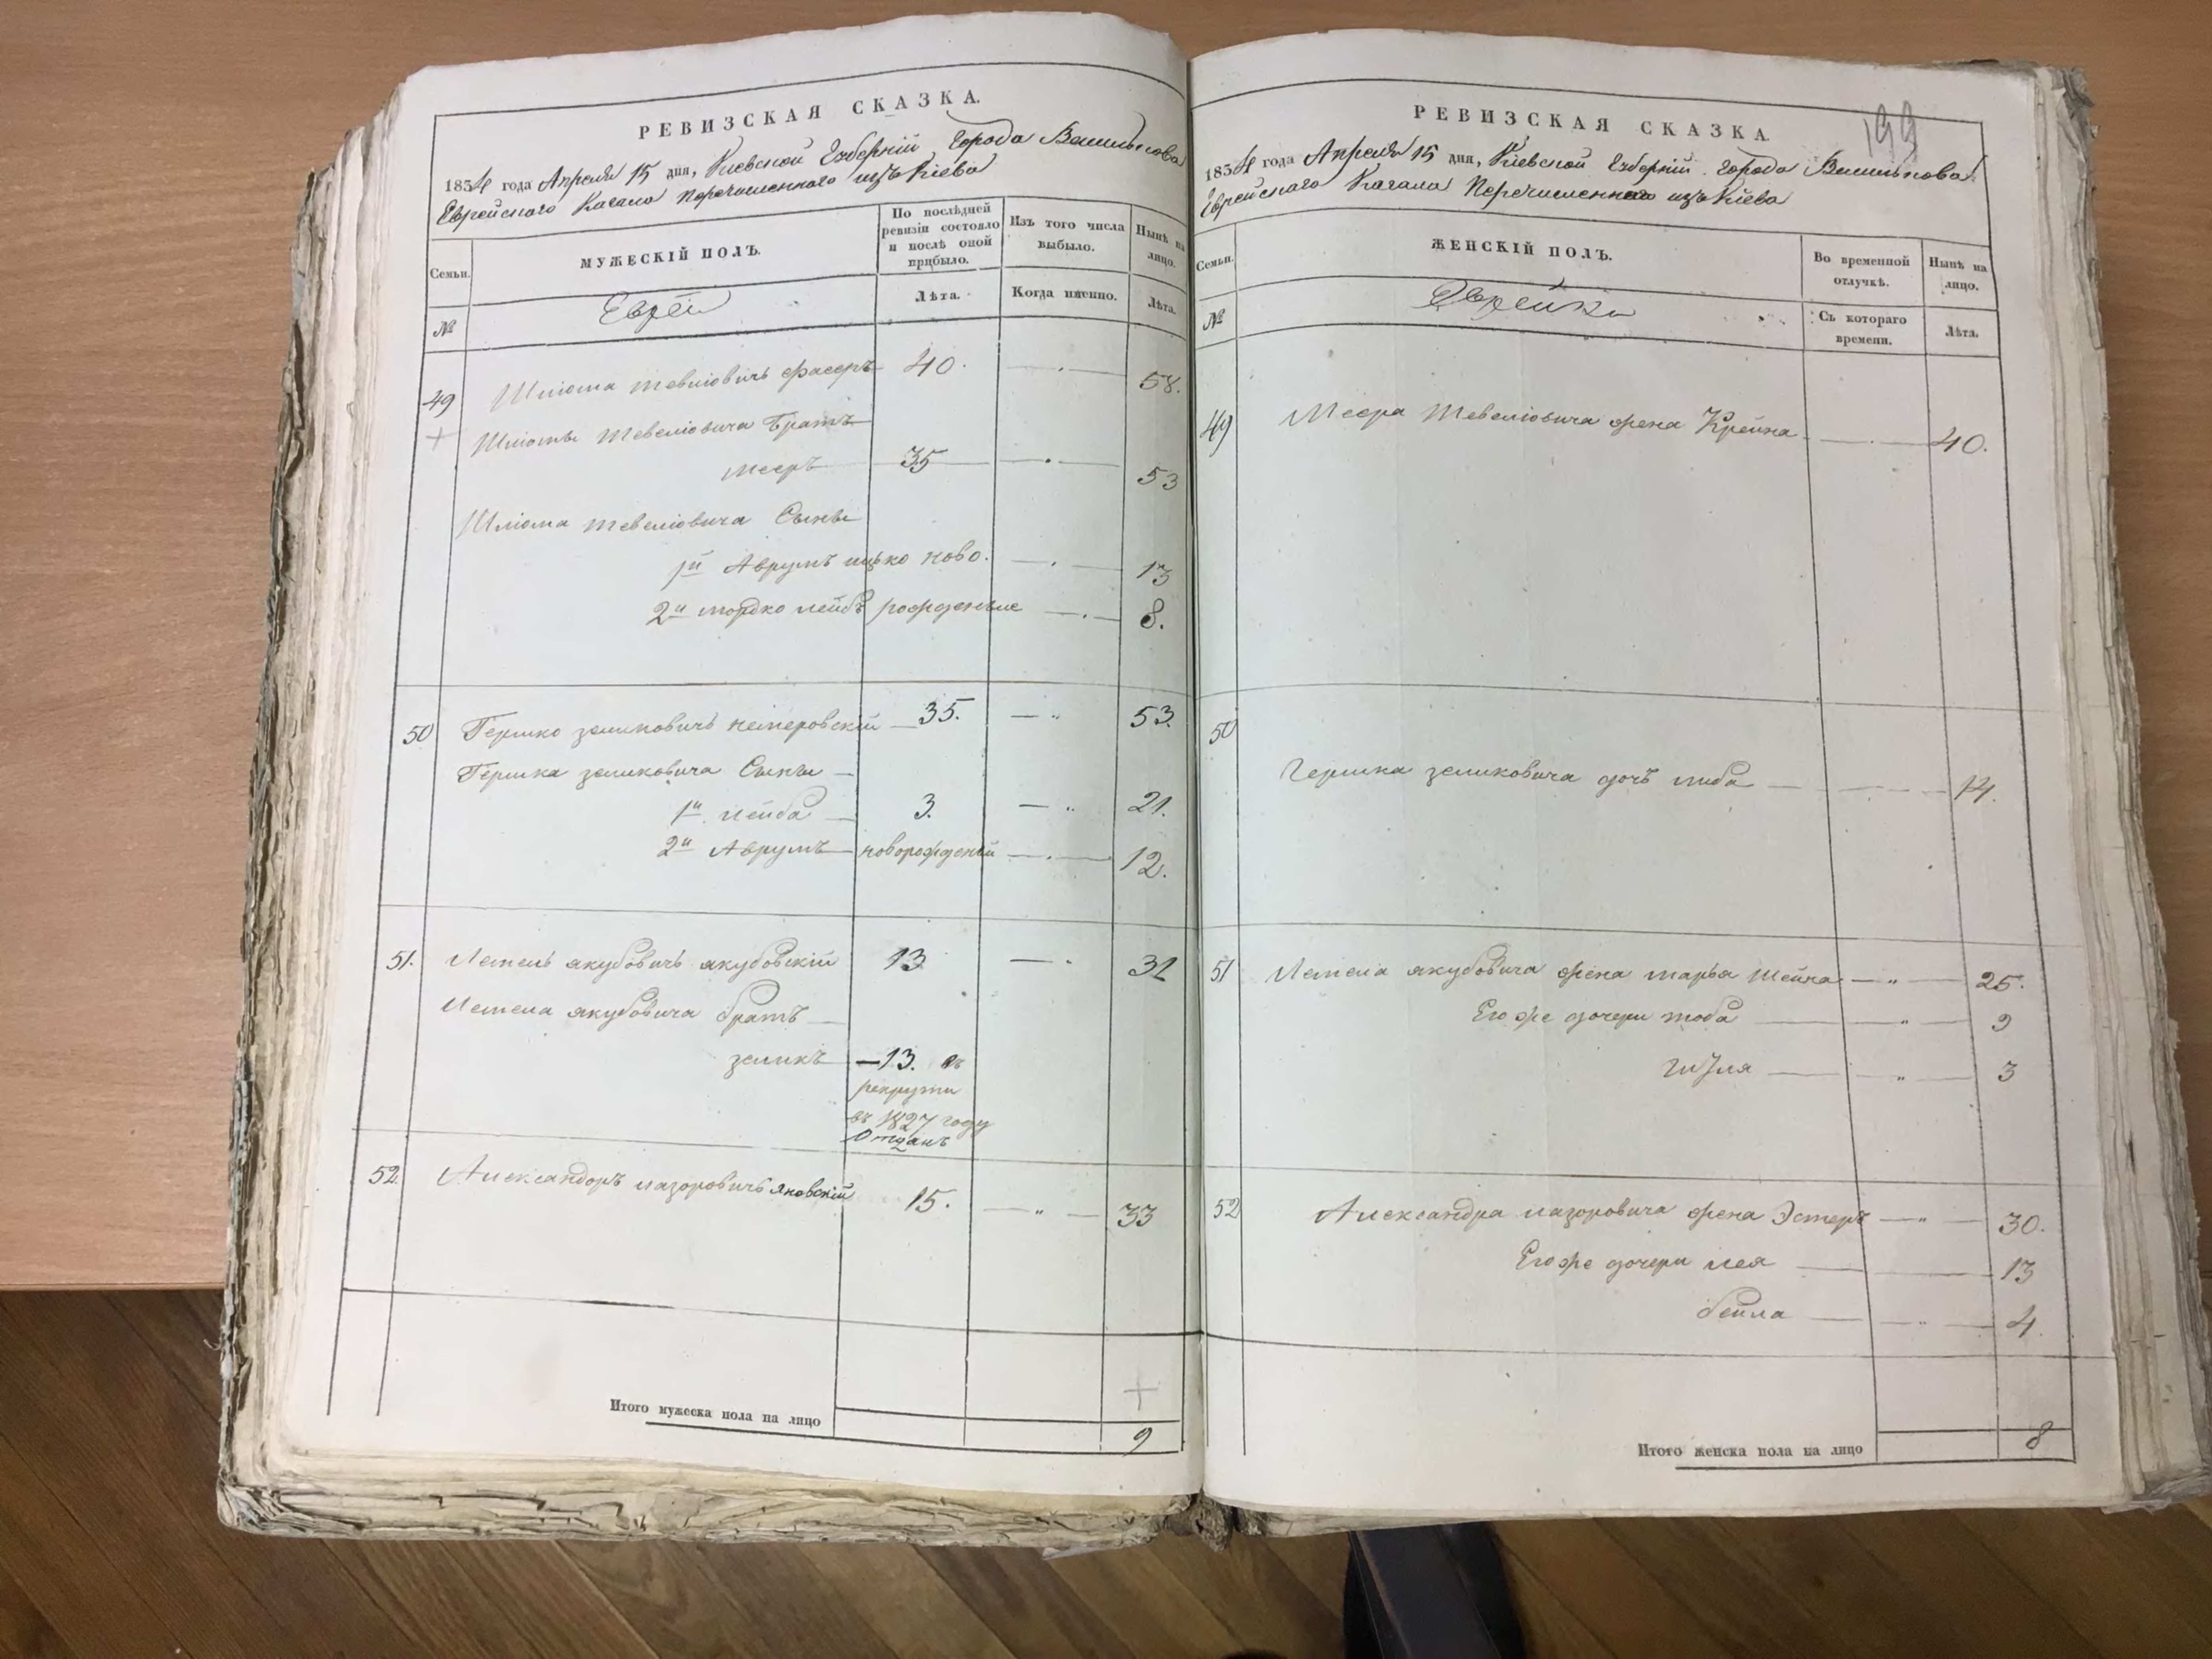 РЕВИЗСКАЯ СКАЗКА.
1834 года Апреля 15 дня, Киевской Губерній Города Василькова
Еврейского Кагала перечисленного изъ Кіева
Семьи.
МУЖЕСКІЙ ПОЛЪ.
По послѣдней ревизіи состояло и послѣ оной прибыло.
Изъ того числа выбыло.
Нынѣ на лицо.
№
Еврей
Лѣта.
Когда именно.
Лѣта.
49 Шліома тевеліовичъ 40. 58.
Шліомы тевеліовича братъ
мееръ 35 53
Шліома тевеліовича Сыны
1й Аврумъ ицько ново. 13
2й мордко лейбъ рожденые 8.
50 Гершко зеликовичъ немеровскій 35. 53.
Гершка зеликовича Сыны
1й лейба 3. 21.
2й Аврумъ новорожденый 12.
51. якубовичъ якубовскій 13 31
якубовича братъ
зеликъ 13. въ
рекруты
въ 1827 году
отданъ
52. Александоръ лазоровичъ яновскій 15. 33
Итого мужеска пола на лицо 9
РЕВИЗСКАЯ СКАЗКА.
199
1834 года Апреля 15 дня, Киевской Губерній города Василькова
Еврейского Кагала перечисленного изъ Кіева
Семьи.
ЖЕНСКІЙ ПОЛЪ.
Во временной отлучкѣ.
Нынѣ на лицо.
№
Еврейки
Съ котораго времени.
Лѣта.
49 Меера тевеліовича жена Крейна 40.
50
Гершка зеликовича дочь либа 14.
51 якубовича жена марья шейна 25.
Его же дочери тоба 9
3
52 Александра лазоровича жена Эстеръ 30.
Его же дочери лея 13
бейла 4.
Итого женска пола на лицо 8